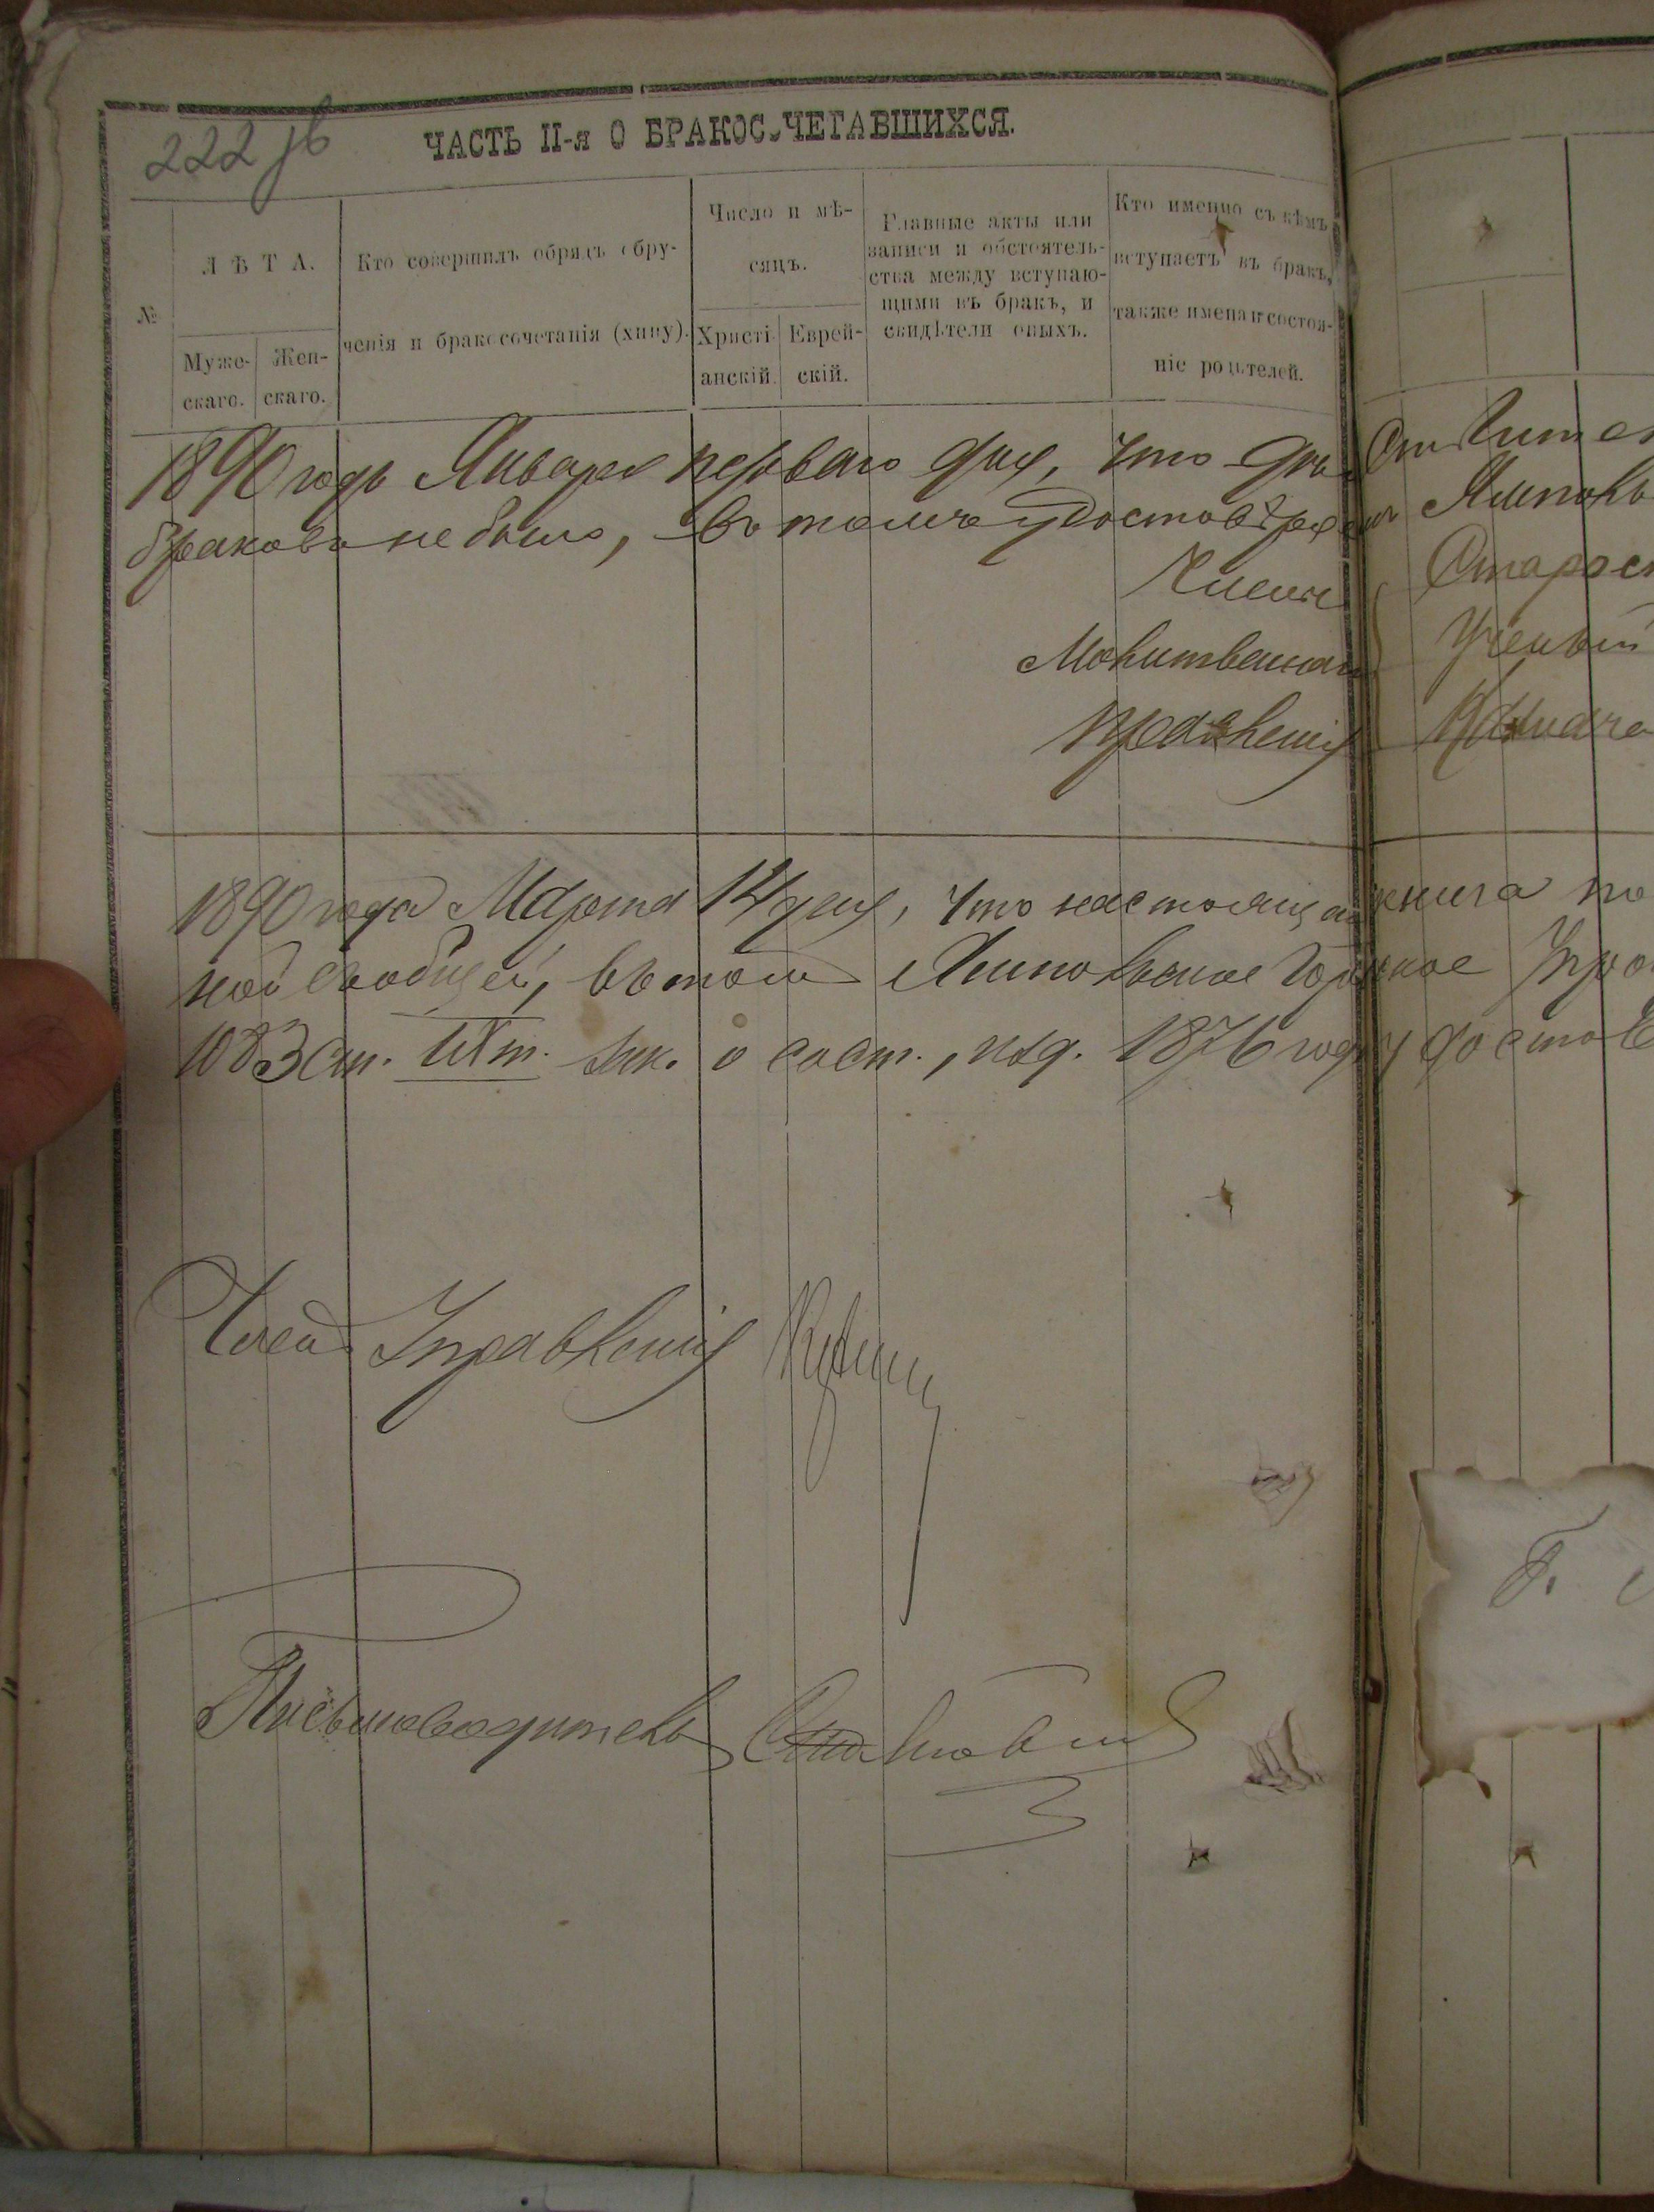 222 об
ЧАСТЬ II-я О БРАКОСОЧЕТАВШИХСЯ.
№
ЛѢТА.
Муже-
скаго.
Жен-
скаго.
Кто совершилъ обрядъ обру-
ченія и бракосочетанія (хипу).
Число и мѣ-
сяцъ.
Христі-
анскій.
Еврей-
скій.
Главные акты или
записи и обстоятель-
ства между вступаю-
щими въ бракъ, и
свидѣтели оныхъ.
Кто именно съ кѣмъ
вступаетъ въ бракъ,
также имена и состоя-
ніе родителей.
1890 года Января перваго дня, что
браковъ небыло, въ томъ удостовѣряемъ
Члены
Молитвеннаго
Правленія
Старос
Ученый
Казначе
1890 года Марта 14 дня, что настоящая книга по
ной сообщей, въ томъ Липовецкое Городское Упра
1083 ст. IX т. зак. о сост., изд. 1876 года удостов
Членъ Управленія
Письмоводитель